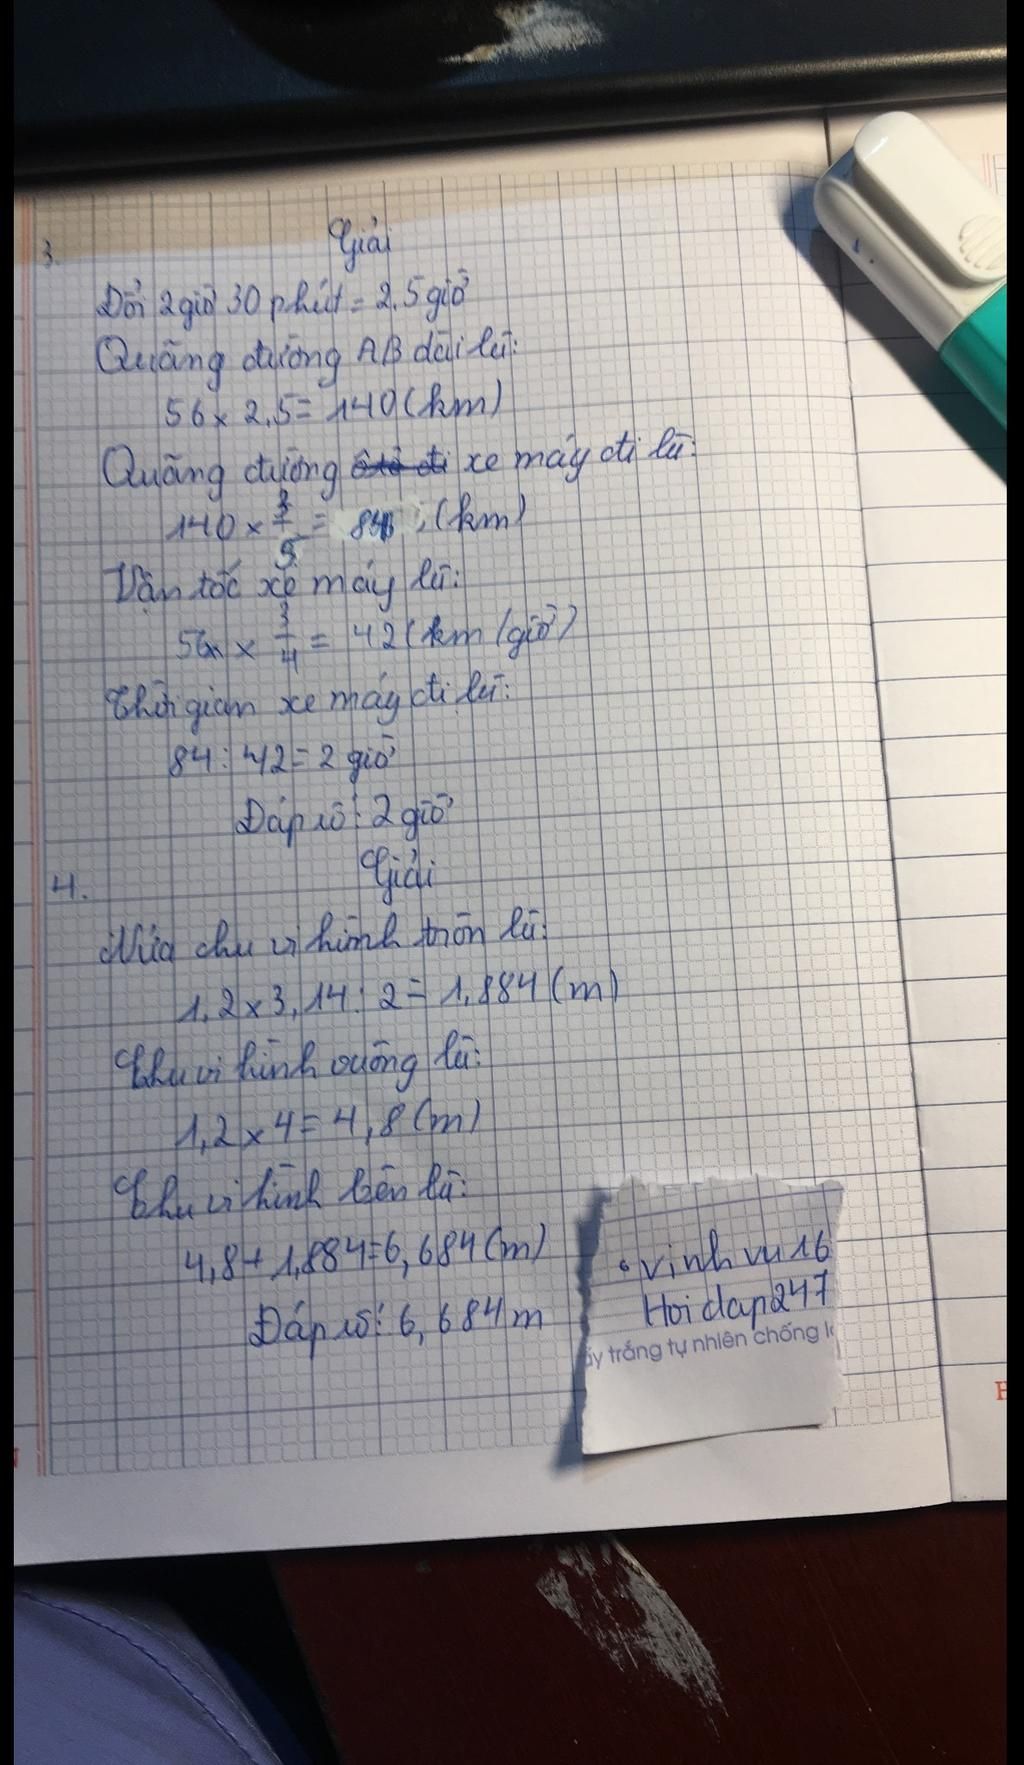 3. Giải
Đổi 2 giờ 30 phút = 2,5 giờ
Quãng đường AB dài là:
56 x 2,5 = 140 (km)
Quãng đường ô tô đi xe máy đi là:
140 x 3/5 = 84 (km)
Vận tốc xe máy là:
56 x 3/4 = 42 (km/giờ)
Thời gian xe máy đi là:
84 : 42 = 2 giờ
Đáp số: 2 giờ
4. Giải
Nửa chu vi hình tròn là:
1,2 x 3,14 : 2 = 1,884 (m)
Chu vi hình vuông là:
1,2 x 4 = 4,8 (m)
Chu vi hình bên là:
4,8 + 1,884 = 6,684 (m)
Đáp số: 6,684 m
vinhvu16
Hoidap247
ẩy trắng tự nhiên chống